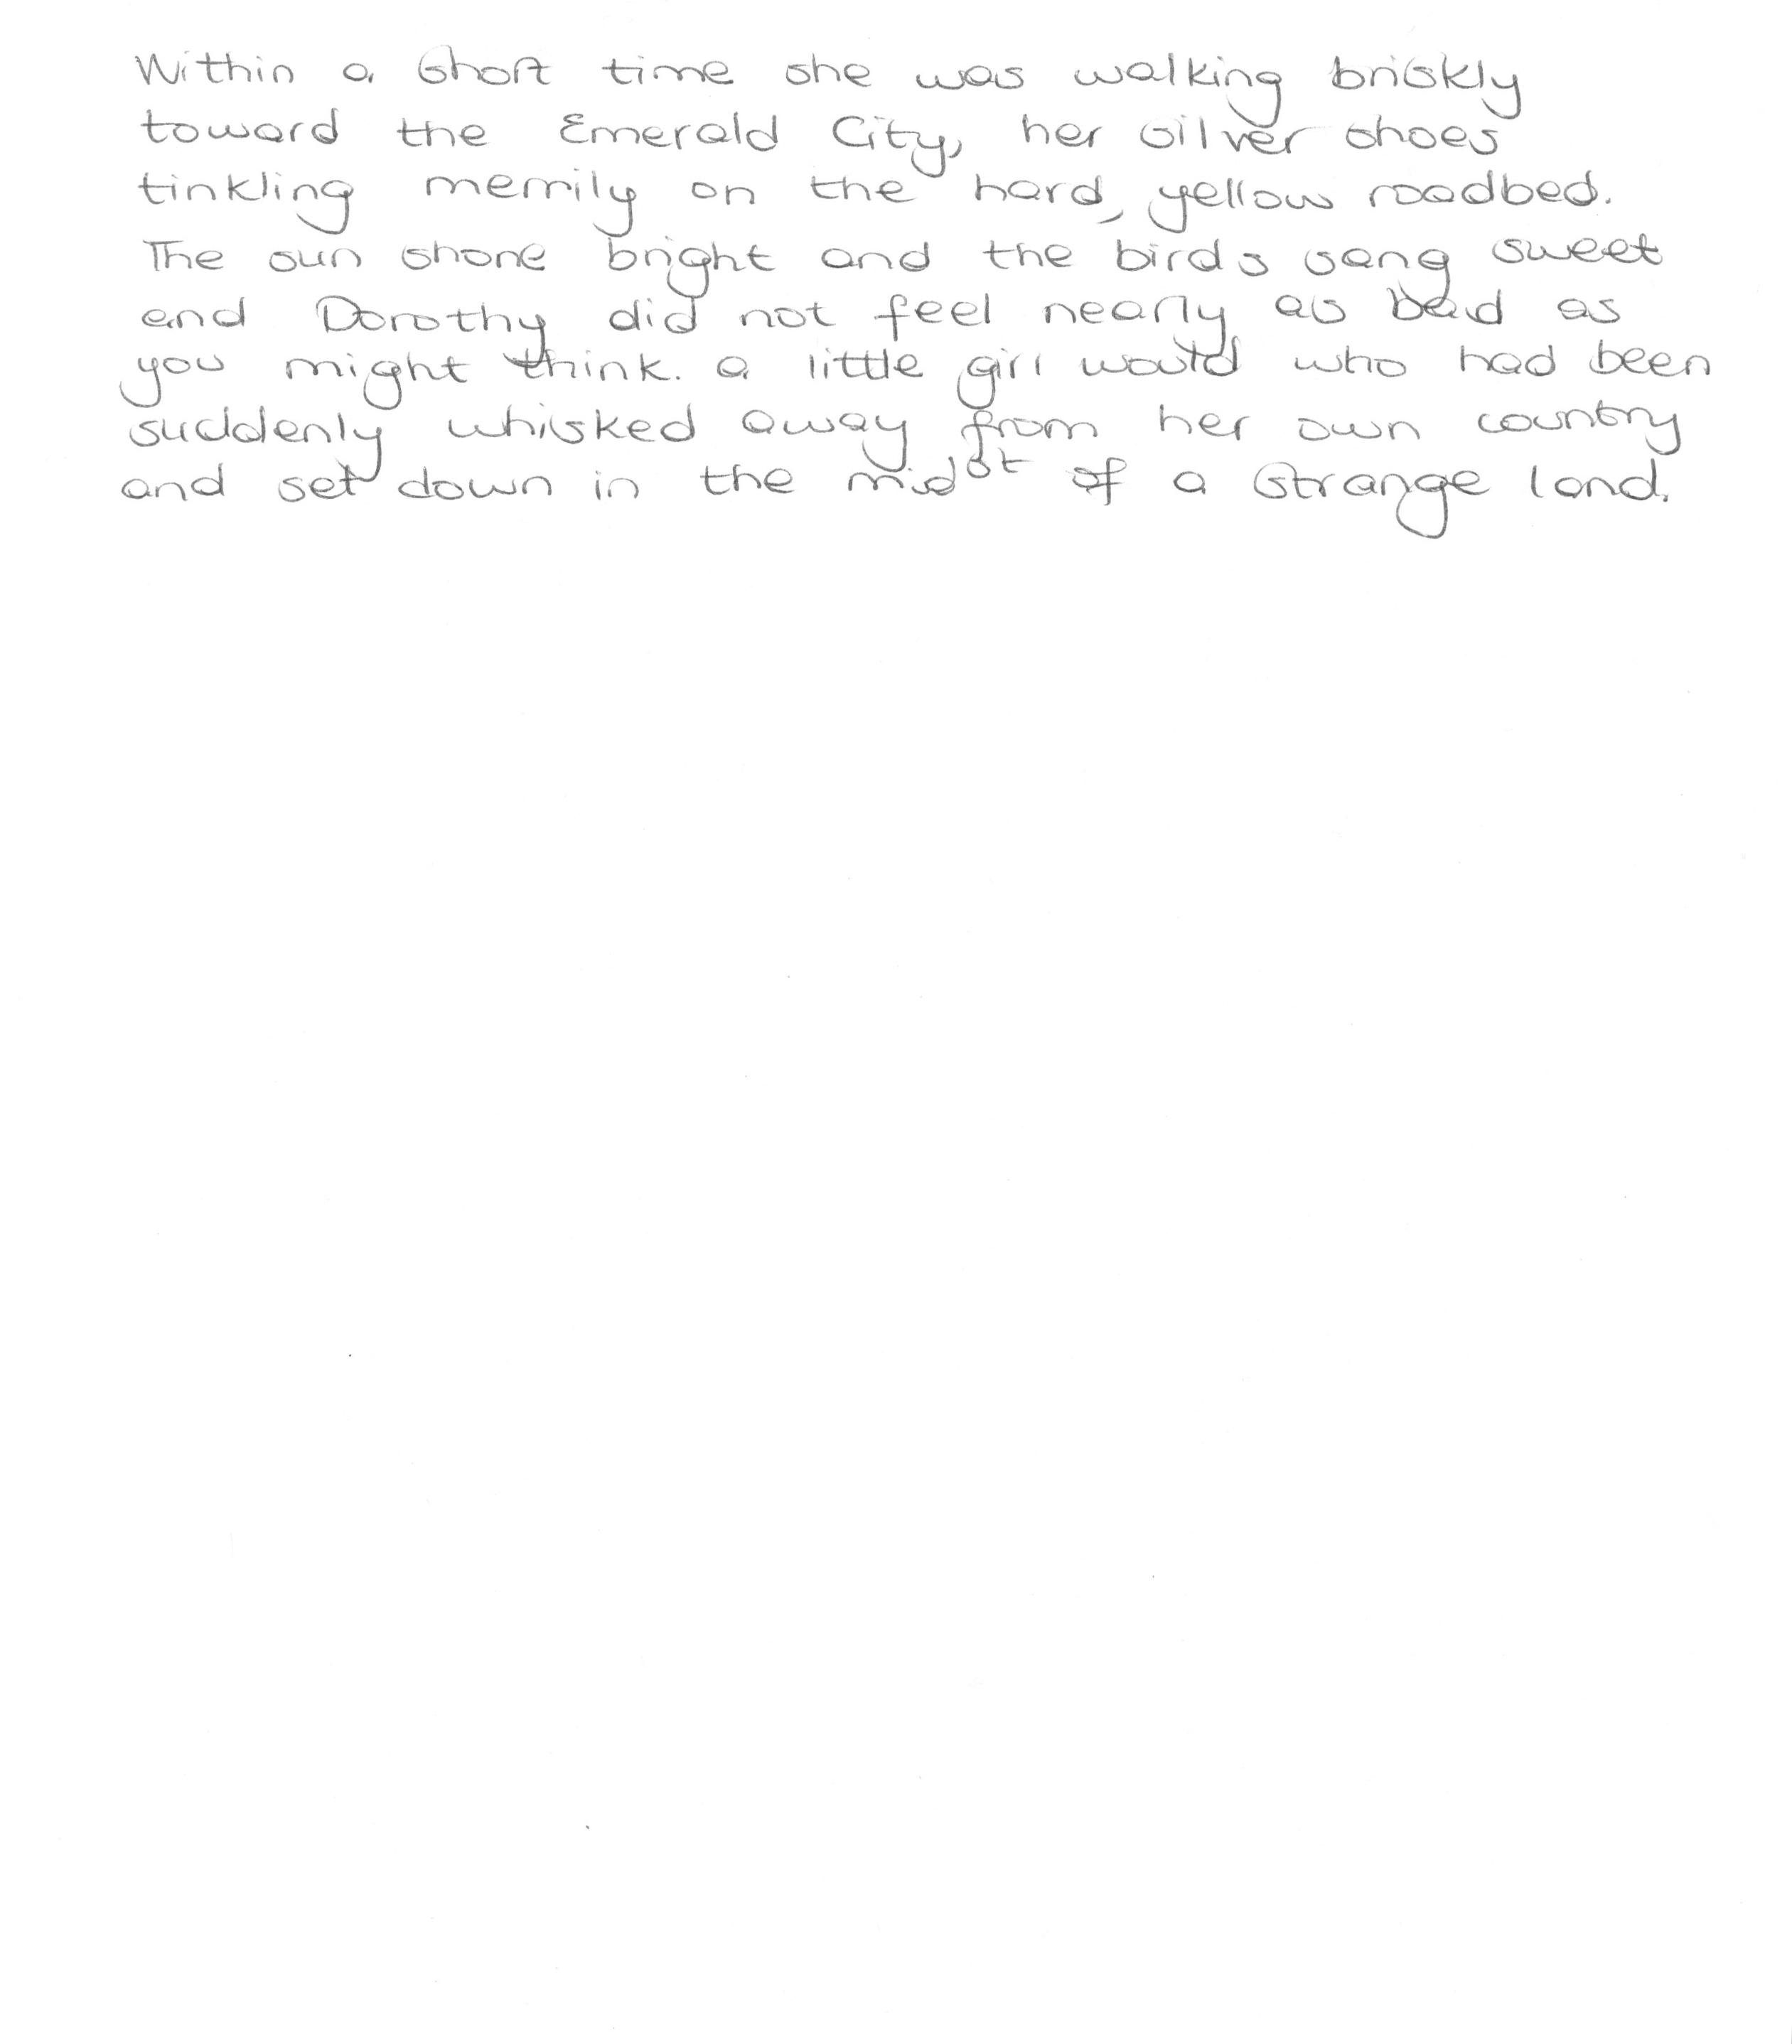 Within a short time she was walking briskly
toward the Emerald City, her silver shoes
tinkling merrily on the hard, yellow roadbed.
The sun shone bright and the birds sang sweet
and Dorothy did not feel nearly as bad as
you might think. a little girl would who had been
suddenly whisked away from her own country
and set down in the midst of a strange land.